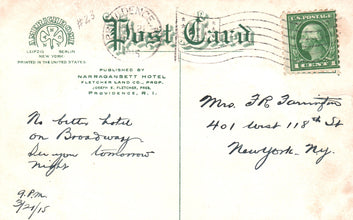 #23
PROVIDENCE
Post Card
U.S. POSTAGE
1 CENT 1
LEIPZIG BERLIN
NEW YORK
PRINTED IN THE UNITED STATES.
PUBLISHED BY
NARRAGANSETT HOTEL
FLETCHER LAND CO., PROP.
JOSEPH E. FLETCHER, PRES.
PROVIDENCE, R. I.
No better hotel
on Broadway
See you tomorrow
night
9 P.M.
3/21/15
Mrs. F R
401 West 118th St
New York. Ny.